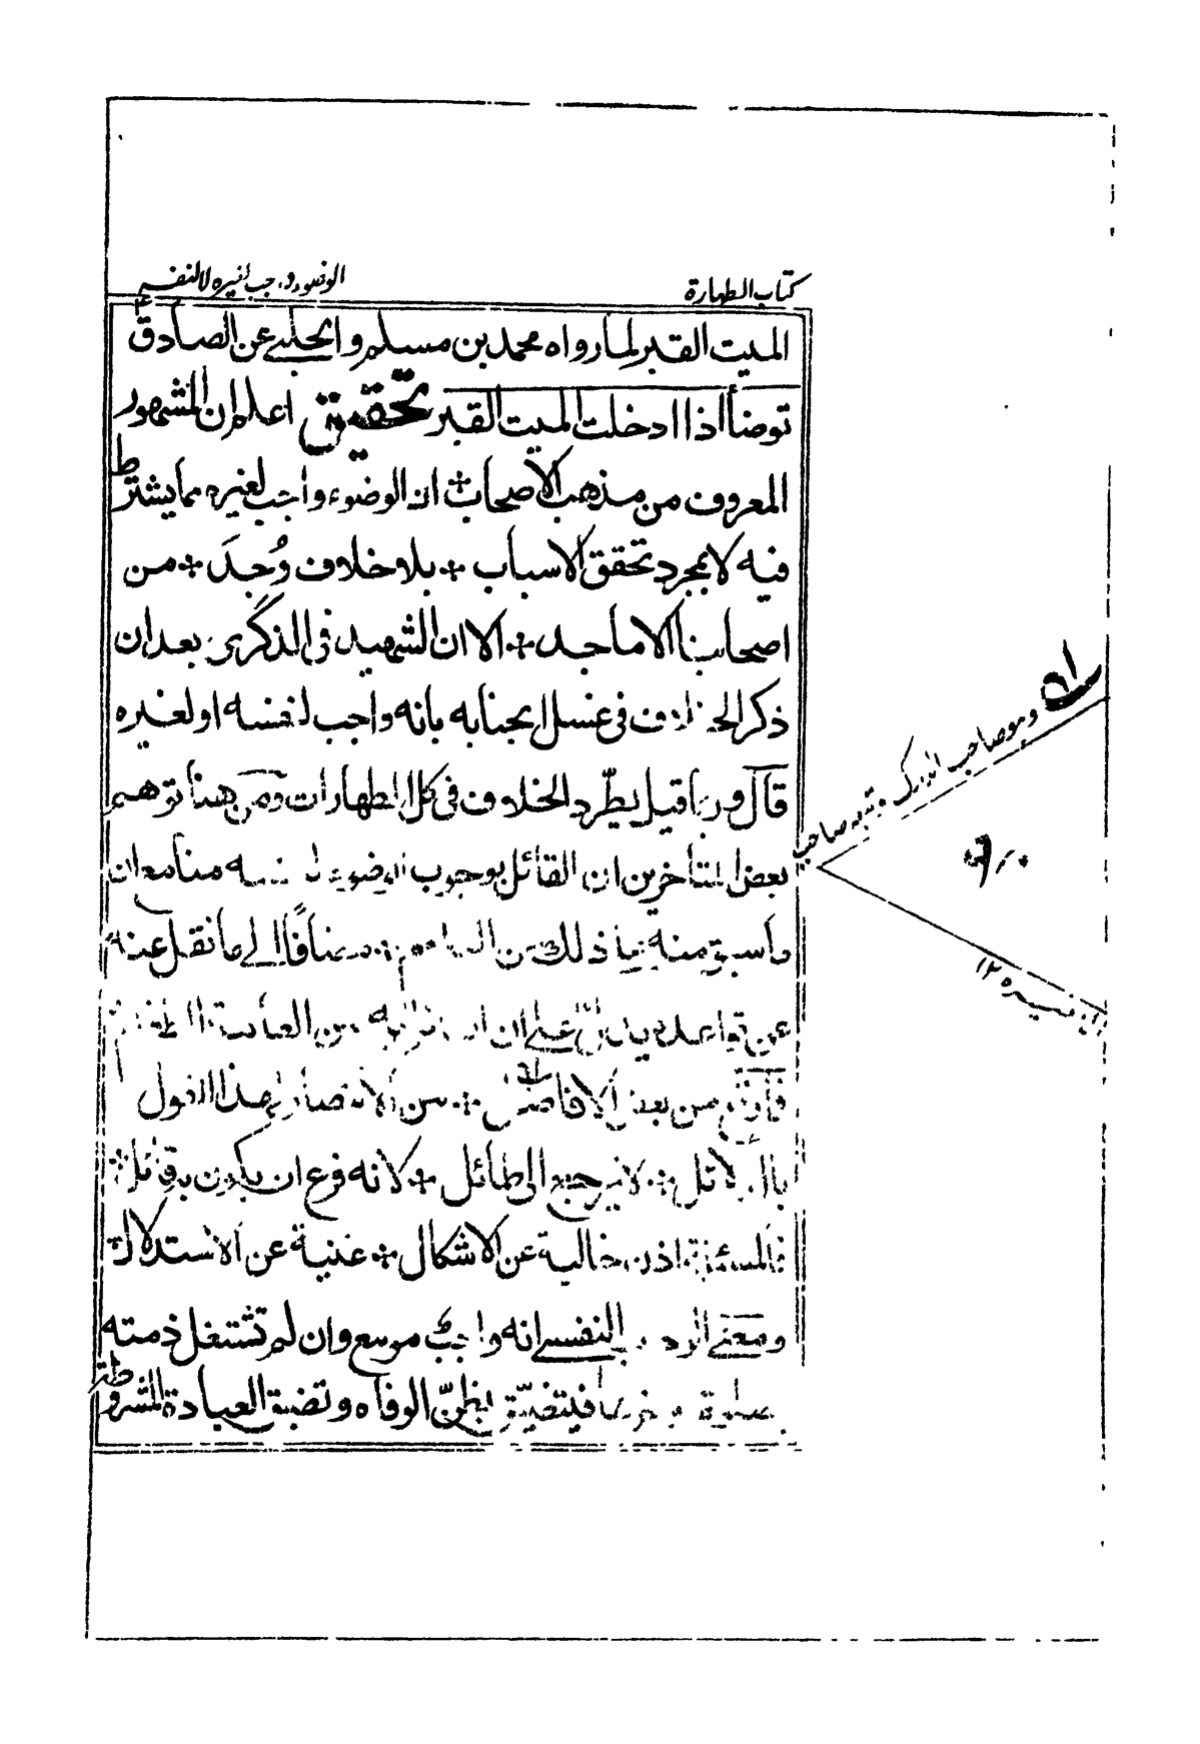 كتاب الطهارة
الوضوء واجب لغيره لا لنفسه
الميت القبر لما رواه محمد بن مسلم والحلبي عن الصادق ع
توضأ اذا ادخلت الميت القبر تحقيق اعلم ان المشهور
المعروف من مذهب الأصحاب ان الوضوء واجب لغيره مما يشترط
فيه لا بمجرد تحقق الاسباب بلا خلاف وُجِدَ من
اصحابنا الاماجد الا ان الشهيد في الذكرى بعد ان
ذكر الخلاف في غسل الجنابه بانه واجب لنفسه او لغيره
قال وربما قيل يطّرد الخلاف في كل الطهارات ومن هنا توهم
بعض المتأخرين ان القائل بوجوب الوضوء لنفسه منا مع ان
ما سبق منه ذلك من مضافًا الى ما نقل عنه
عن قواعده يدل على ان من العامة
من بعض الأفاضل من الانتصار لهذا القول
بالدلائل لا يرجع الى طائل لانه فرع ان يكون به قائل
فالمسئلة اذن خالية عن الاشكال غنية عن الاستدلال
ومعنى النفسي انه واجب موسع وان لم تشتغل ذمته
فيتضيّق بظنّ الوفاه وتضيق العبادة المشروطة
وهو صاحب المدارك وتبعه صاحب
الذخيره ١٢